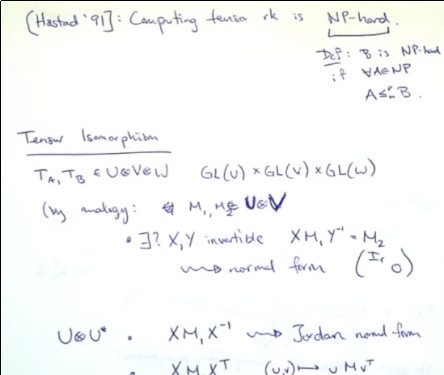 [Hastad '91]: Computing tensor rk is NP-hard.
Def: B is NP-hard
if ∀A∈NP
A ≤ᵖₘ B.
Tensor Isomorphism
T_A, T_B ∈ U⊗V⊗W GL(U) × GL(V) × GL(W)
(by analogy: M₁, M₂ ∈ U⊗V
• ∃? X, Y invertible XM₁Y⁻¹ = M₂
⇝ normal form (I_r 0)
U⊗U* • XM₁X⁻¹ ⇝ Jordan normal form
• XM₁Xᵀ (u,v) ↦ uMvᵀ